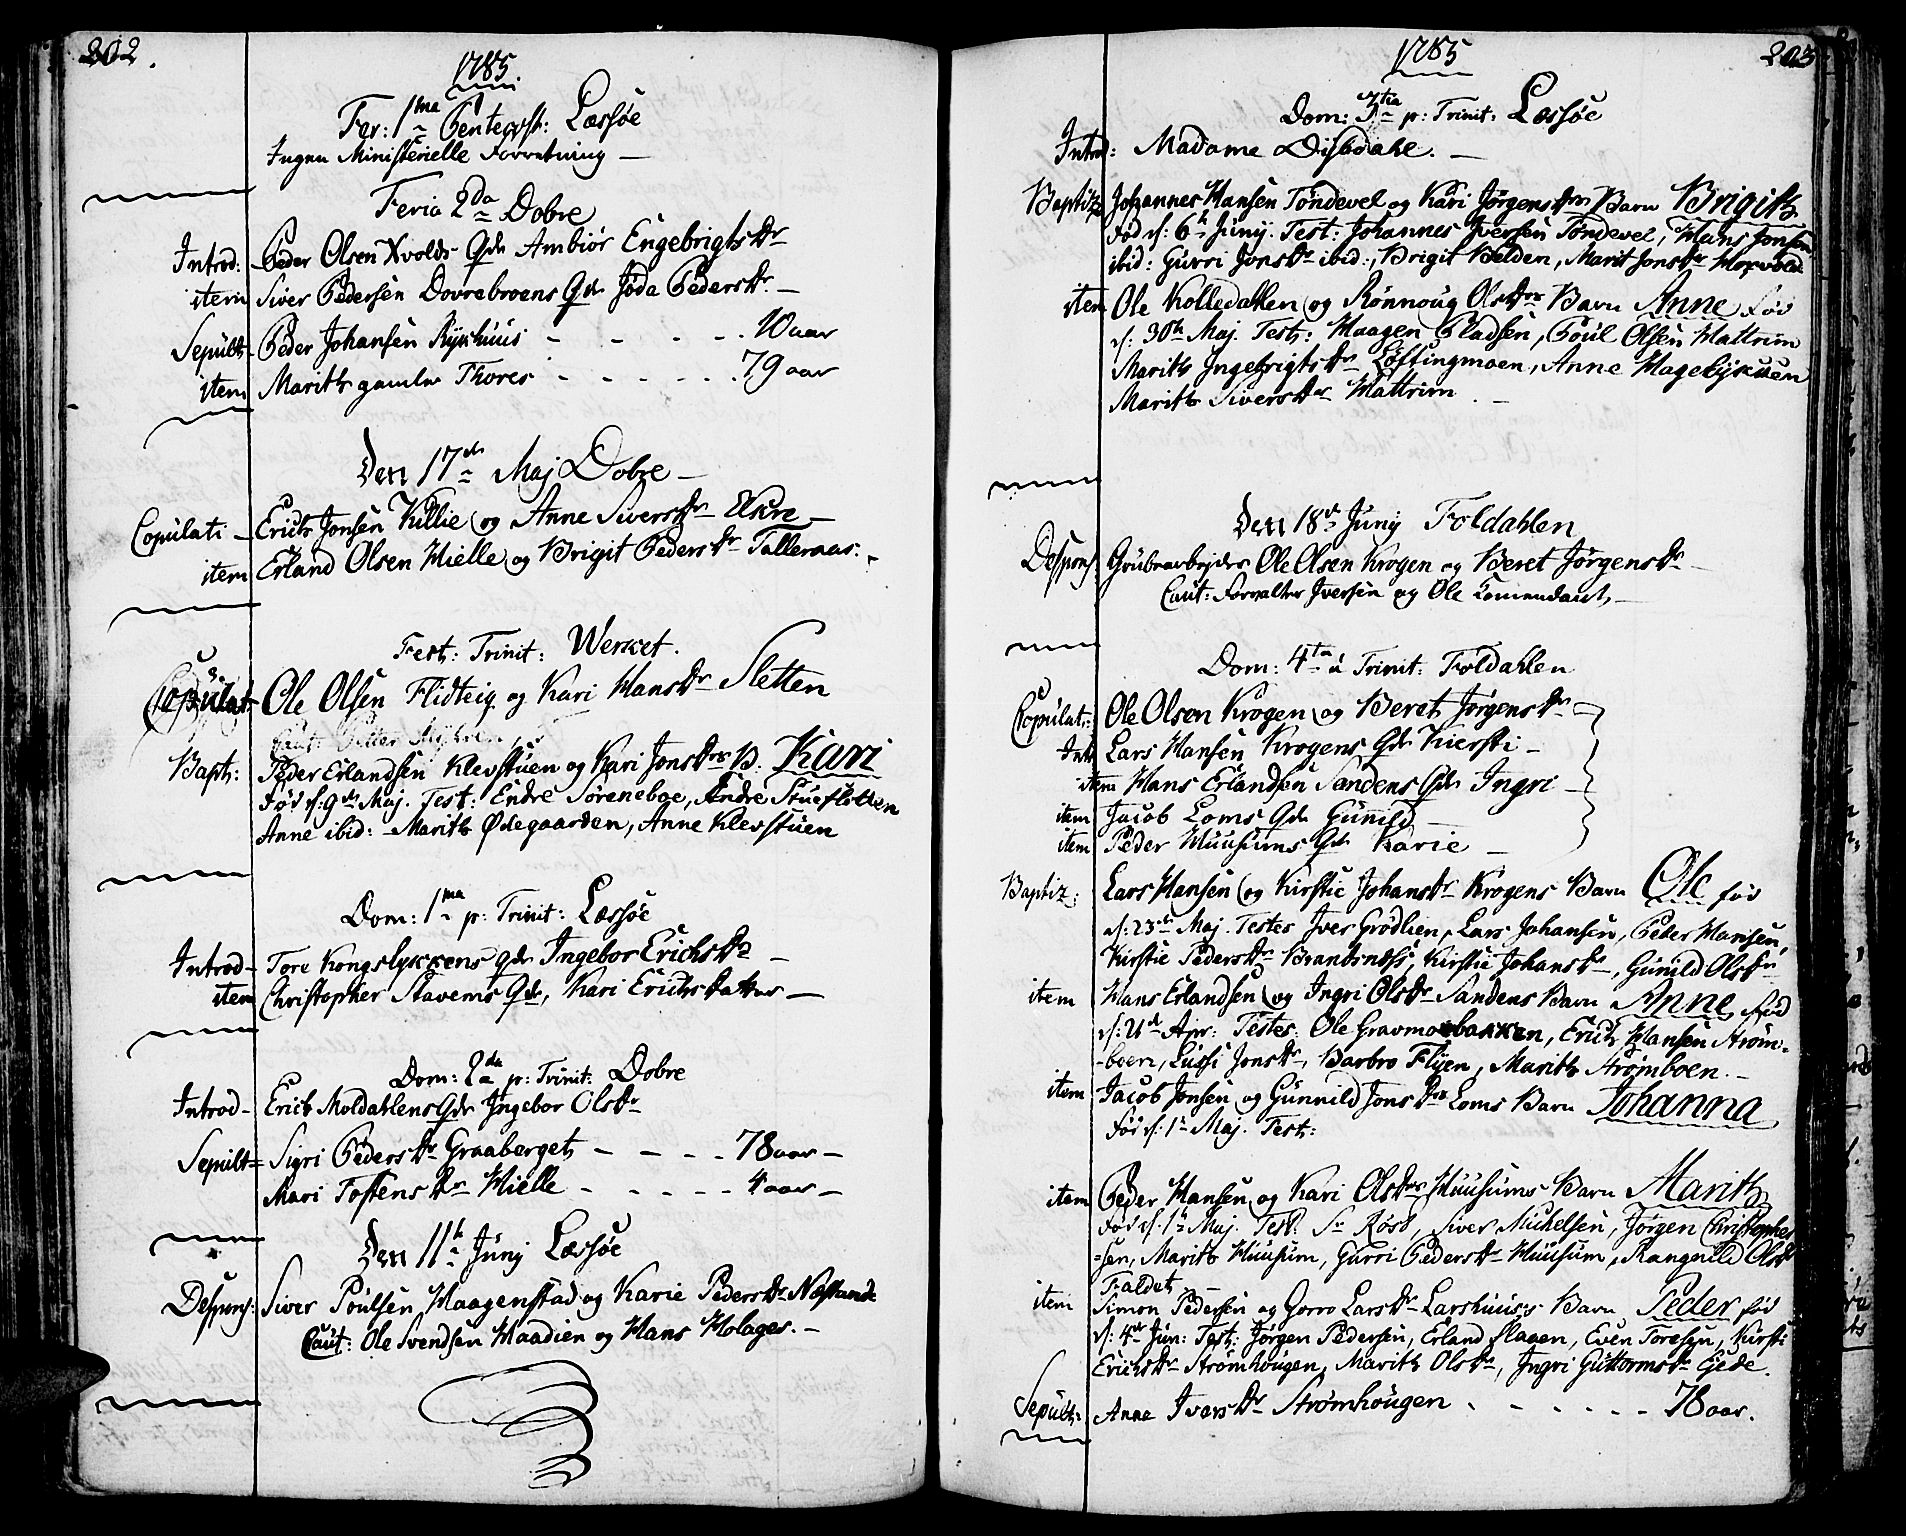 202.
1785.
Fer: 1ma Pentecost: Læssøe
Ingen Ministerielle Forretning —
Feria 2da Dobre
Introd: Peder Olsen Qvolds Qde Ambiør Engebrigts Dr
item Siver Pedersen Dovrebroens Qde Jøda Peders Dr. —
Sepult: Peder Johansen Ryshuus - - - - 10 aar
item Marith gamle Thores - - - - 79 aar
Den 17de Maj Dobre —
Copulati — Erich Jonsen Killie og Anne Sivers Dr Elsire —
item Erland Olsen Hielle og Brigit Peders Dr Talleraas.
Fest: Trinit: Werket.
Copulat: Ole Olsen Flidteig og Kari Hans Dr Sletten
Caut: Petter
Bapt: Peder Erlandsen Klevstuen og Kari Jons Drs B. Kari
Fød d: 9de Maj. Test: Endre Søreneboe, Andre Stuefletten
Anne ibid: Marith Ødegaarden, Anne Klevstuen
Dom: 1ma p: Trinit: Læssøe
Introd — Tore Kongslykkens Qde Ingebor Erichs Dr —
item Christopher Stavems Qde, Kari Erichsdatter —
Dom: 2da p: Trinit: Dobre
Introd — Erich Moldahlens Qde Ingebor Ols Dr
Sepult = Sigri Peders Dr Graaberget — - - - 78 aar —
Mari Tostens Dr Hielle - - - - - 4 aar —
Den 11te Junij Læssøe
Despons: Siver Poulsen Haagenstad og Karie Peders Dr Nostande
Caut: Ole Svendsen Haadien og Hans Holages. —
1785
203
Dom: 3tia p: Trinit: Læssøe
Introd: Madame Disbdahl. —
Baptiz Johannes Hansen Tøndevel og Kari Jørgens Drs Barn Brigith
Fød d: 6te Junij. Test: Johannes Iversen Tøndevel, Hans Jonsen
ibid: Gurri Jons Dr ibid:, Brigit Belden, Marit Jons Dr
item Ole Kolledahlen og Rønnoug Ols Drs Barn Anne fød
d: 30te Maj. Test: Haagen Pladsen, Poul Olsen Mattrim
Marith Ingebrigts Dr Løftingmoen, Anne
Marith Sivers Dr Mattrim —
Den 18de Junij Foldahlen
Despons: Grubearbejder Ole Olsen Krogen og Beret Jørgens Dr
Caut: Forvalter Iversen og Ole Komendant —
Dom: 4ta á Trinit: Foldahlen
Copulat: Ole Olsen Krogen og Beret Jørgens Dr —
Int: Lars Hansen Krogens Qde Kiersti —
item Hans Erlandsen Sandens Qde Ingri —
item Jacob Loms Qde Gunild —
item Peder Huusums Qde Karie —
Baptiz: Lars Hansen og Kirstie Johans Dr Krogens Barn Ole fød
d: 23de Maj. Testes Iver Grødlien, Lars Johansen, Peder Hansen,
Kirstie Peders Dr Brandsnæss, Kirstie Johans Dr, Gunild Ols Dr
item Hans Erlandsen og Ingri Ols Dr Sandens Barn Anne fød
d: 4de Apr: Testes: Ole Gravmobakken, Erich Hansen Strøm-
-boen, Lussi Jons Dr, Barbro Flÿen, Marith Strømboen. —
item Jacob Jonsen og Gunnild Jons Drs Loms Barn Johanna
Fød d: 1te Maj. Test:
item Peder Hansen og Kari Ols Drs Huusums Barn Marith
Fød d: 1te Maj. Test. Sr Røst, Siver Michelsen, Jørgen Christopher
=sen, Marith Huusum, Gurri Peders Dr Huusum, Rangnild Ols Dr
Faldet —
item Simon Pedersen og Gorro Lars Dr Larshuus's Barn Peder fød
d: 4de Jun: Test: Jørgen Pedersen, Erland Slagen, Even Toresen, Kirsti
Erichs Dr Strømhougen, Marith Ols Dr, Ingri Guttorms Dr Giede.
Sepult: Anne Ivers Dr Strømhougen - - - - - 78 aar.